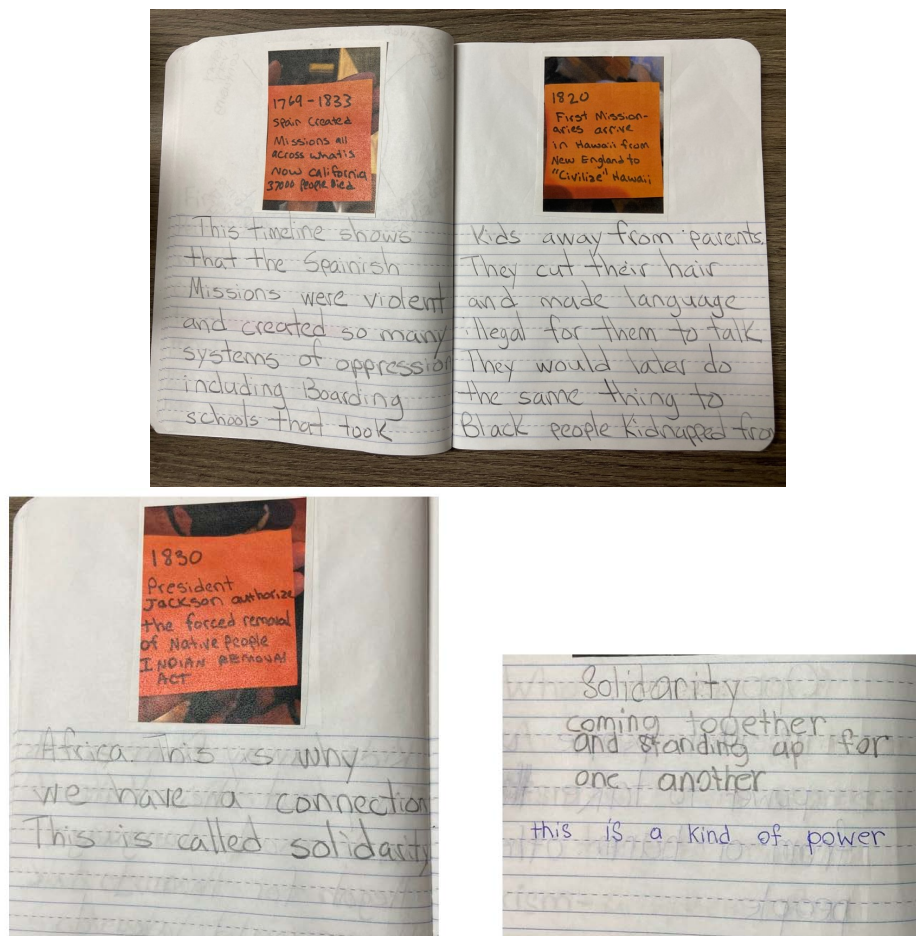 1769-1833
Spain Created
Missions all
across what is
Now California
37000 People Died
This timeline shows
that the Spainish
Missions were violent
and created so many
systems of oppression
including Boarding
schools that took
1820
First Mission-
aries arrive
in Hawaii from
New England to
"Civilize" Hawaii
Kids away from parents.
They cut their hair
and made language
illegal for them to talk
They would later do
the same thing to
Black people Kidnapped from
1830
President
Jackson authorize
the forced removal
of Native People
INDIAN REMOVAL
ACT
Africa. This is why
we have a connection
This is called solidarity
Solidarity
coming together
and standing up for
one another
this is a kind of power